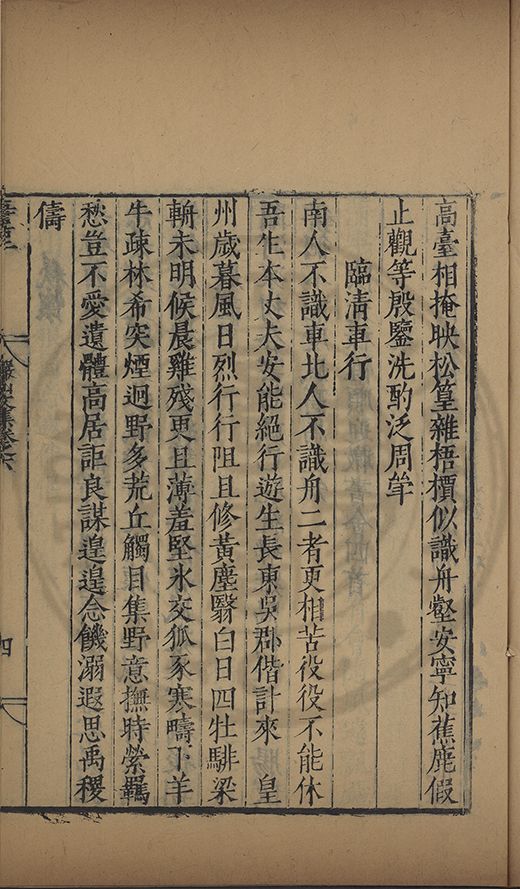 高臺相掩映松篁雜梧檟似識舟壑安寧知蕉鹿假
止觀等殷鑒洗酌泛周斝
臨清車行
南人不識車北人不識舟二者更相苦役役不能休
吾生本丈夫安能絕行遊生長東吳郡偕計來 皇
州歲暮風日烈行行阻且修黃塵翳白日四牡騑梁
輈未明候晨雞殘更且薄羞堅氷交狐豕寒疇下羊
牛疎林希突煙迥野多荒丘觸目集野意撫時縈羈
愁豈不愛遺體高居詎良謀遑遑念饑溺遐思禹稷
儔
四